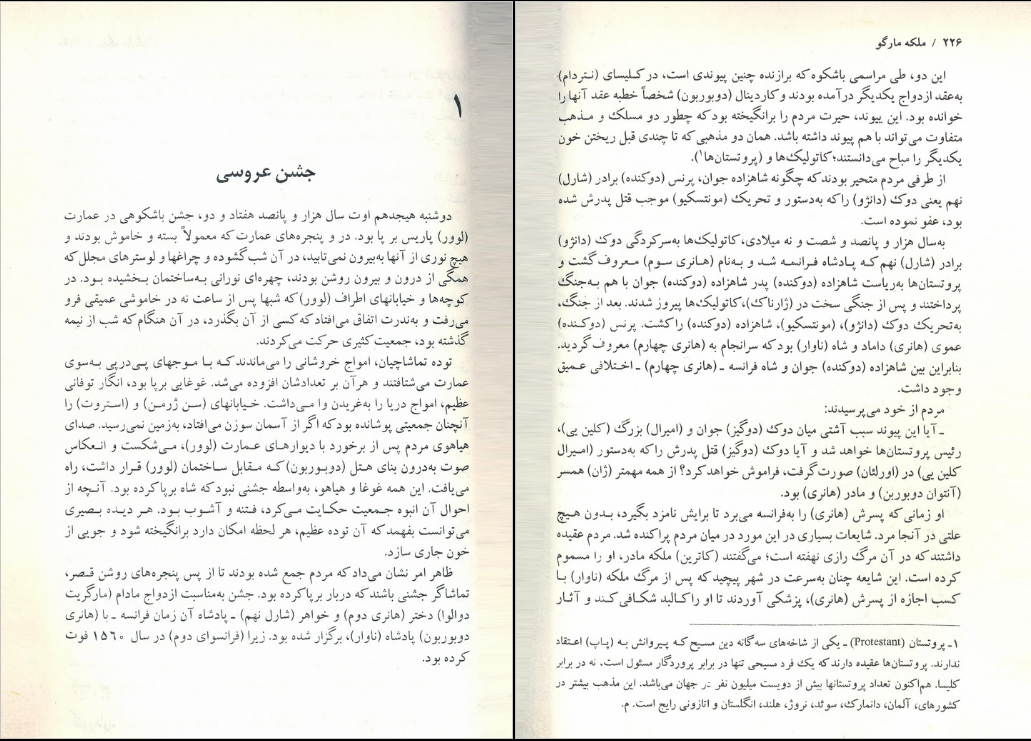 ۱
جشن عروسی
دوشنبه هیجدهم اوت سال هزار و پانصد هفتاد و دو، جشن باشکوهی در عمارت
(لوور) پاریس بر پا بود. در و پنجره‌های عمارت که معمولاً بسته و خاموش بودند و
هیچ نوری از آنها به‌بیرون نمی‌تابید، در آن شب گشوده و چراغها و لوسترهای مجلل که
همگی از درون و بیرون روشن بودند، چهره‌ای نورانی به‌ساختمان بخشیده بود. در
کوچه‌ها و خیابانهای اطراف (لوور) که شبها پس از ساعت نه در خاموشی عمیقی فرو
می‌رفت و به‌ندرت اتفاق می‌افتاد که کسی از آن بگذرد، در آن هنگام که شب از نیمه
گذشته بود، جمعیت کثیری حرکت می‌کردند.
توده تماشاچیان، امواج خروشانی را می‌ماندند که با موجهای پی‌درپی به‌سوی
عمارت می‌شتافتند و هرآن بر تعدادشان افزوده می‌شد. غوغایی برپا بود، انگار توفانی
عظیم، امواج دریا را به‌غریدن وا می‌داشت. خیابانهای (سن ژرمن) و (استروت) را
آنچنان جمعیتی پوشانده بود که اگر از آسمان سوزن می‌افتاد، به‌زمین نمی‌رسید. صدای
هیاهوی مردم پس از برخورد با دیوارهای عمارت (لوور)، می‌شکست و انعکاس
صوت به‌درون بنای هتل (دوبوربون) که مقابل ساختمان (لوور) قرار داشت، راه
می‌یافت. این همه غوغا و هیاهو، به‌واسطه جشنی نبود که شاه برپا کرده بود. آنچه از
احوال آن انبوه جمعیت حکایت می‌کرد، فتنه و آشوب بود. هر دیده بصیری
می‌توانست بفهمد که آن توده عظیم، هر لحظه امکان دارد برانگیخته شود و جویی از
خون جاری سازد.
ظاهر امر نشان می‌داد که مردم جمع شده بودند تا از پس پنجره‌های روشن قصر،
تماشاگر جشنی باشند که دربار برپا کرده بود. جشن به‌مناسبت ازدواج مادام (مارگریت
دوالوا) دختر (هانری دوم) و خواهر (شارل نهم) ـ پادشاه آن زمان فرانسه ـ با (هانری
دوبوربون) پادشاه (ناوار)، برگزار شده بود. زیرا (فرانسوای دوم) در سال ۱۵۶۰ فوت
کرده بود.
۲۲۶ / ملکه مارگو
این دو، طی مراسمی باشکوه که برازنده چنین پیوندی است، در کلیسای (نتردام)
به‌عقد ازدواج یکدیگر درآمده بودند و کاردینال (دوبوربون) شخصاً خطبه عقد آنها را
خوانده بود. این پیوند، حیرت مردم را برانگیخته بود که چطور دو مسلک و مذهب
متفاوت می‌تواند با هم پیوند داشته باشد. همان دو مذهبی که تا چندی قبل ریختن خون
یکدیگر را مباح می‌دانستند؛ کاتولیک‌ها و (پروتستان‌ها۱).
از طرفی مردم متحیر بودند که چگونه شاهزاده جوان، پرنس (دوکنده) برادر (شارل)
نهم یعنی دوک (دانژو) را که به‌دستور و تحریک (مونتسکیو) موجب قتل پدرش شده
بود، عفو نموده است.
به‌سال هزار و پانصد و شصت و نه میلادی، کاتولیک‌ها به‌سرکردگی دوک (دانژو)
برادر (شارل) نهم که پادشاه فرانسه شد و به‌نام (هانری سوم) معروف گشت و
پروتستان‌ها به‌ریاست شاهزاده (دوکنده) پدر شاهزاده (دوکنده) جوان با هم به‌جنگ
پرداختند و پس از جنگی سخت در (ژارناک)، کاتولیک‌ها پیروز شدند. بعد از جنگ،
به‌تحریک دوک (دانژو)، (مونتسکیو)، شاهزاده (دوکنده) را کشت. پرنس (دوکنده)
عموی (هانری) داماد و شاه (ناوار) بود که سرانجام به (هانری چهارم) معروف گردید.
بنابراین بین شاهزاده (دوکنده) جوان و شاه فرانسه ـ (هانری چهارم) ـ اختلافی عمیق
وجود داشت.
مردم از خود می‌پرسیدند:
ـ آیا این پیوند سبب آشتی میان دوک (دوگیز) جوان و (امیرال) بزرگ (کلین یی)،
رئیس پروتستان‌ها خواهد شد و آیا دوک (دوگیز) قتل پدرش را که به‌دستور (امیرال
کلین یی) در (اورلئان) صورت گرفت، فراموش خواهد کرد؟ از همه مهمتر (ژان) همسر
(آنتوان دوبوربن) و مادر (هانری) بود.
او زمانی که پسرش (هانری) را به‌فرانسه می‌برد تا برایش نامزد بگیرد، بدون هیچ
علتی در آنجا مرد. شایعات بسیاری در این مورد در میان مردم پراکنده شد. مردم عقیده
داشتند که در آن مرگ رازی نهفته است؛ می‌گفتند (کاترین) ملکه مادر، او را مسموم
کرده است. این شایعه چنان به‌سرعت در شهر پیچید که پس از مرگ ملکه (ناوار) با
کسب اجازه از پسرش (هانری)، پزشکی آوردند تا او را کالبد شکافی کند و آثار
۱ـ پروتستان (Protestant) ـ یکی از شاخه‌های سه‌گانه دین مسیح که پیروانش به (پاپ) اعتقاد
ندارند. پروتستان‌ها عقیده دارند که یک فرد مسیحی تنها در برابر پروردگار مسئول است، نه در برابر
کلیسا. هم‌اکنون تعداد پروتستانها بیش از دویست میلیون نفر در جهان می‌باشد. این مذهب بیشتر در
کشورهای، آلمان، دانمارک، سوئد، نروژ، هلند، انگلستان و اتازونی رایج است. م.